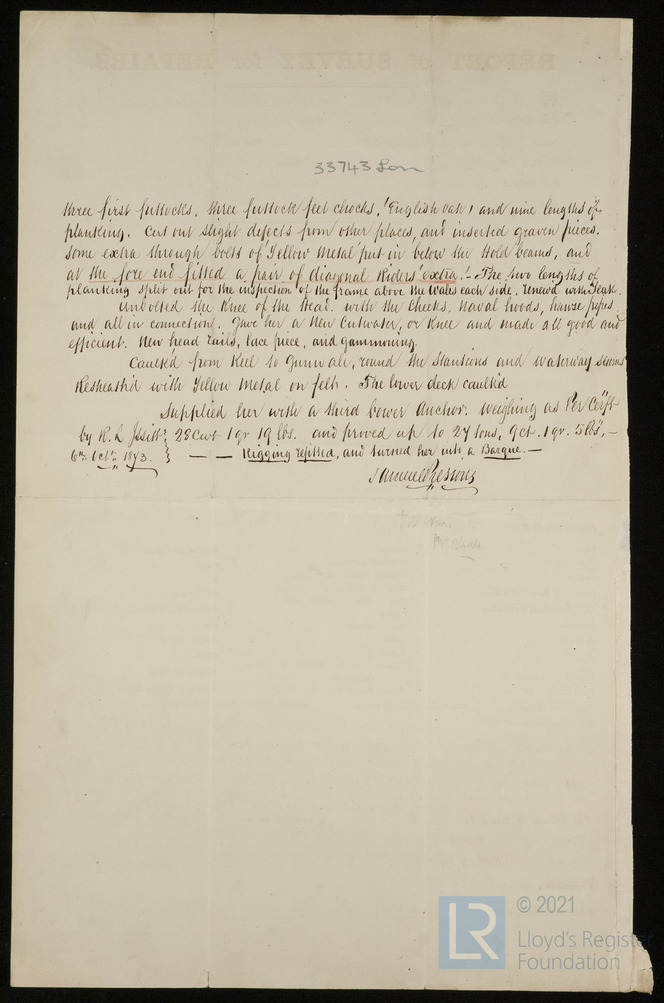 REPORT of SURVEY for REPAIRS
33743 Lon
three first futtocks, three futtock feet chocks, (English oak) and nine lengths of
planking. Cut out slight defects from other places, and inserted graven pieces.
Some extra through bolts of Yellow Metal put in below the Hold beams, and
at the fore end fitted a pair of diagonal Riders 'extra'. - The two lengths of
planking split out for the inspection of the frame above the Wales each side, renewd with Teak.
Unbolted the Knee of the Head, with the Cheeks, Naval hoods, hawse pipes
and all in connection. Gave her a New Cutwater, or Knee and made all good and
efficient. New head rails, lace piece, and gammoning.
Caulk'd from Keel to Gunwale, round the Stantions and waterway seams
Resheath'd with Yellow Metal on felt. The lower deck caulk'd
Supplied her with a third bower Anchor, weighing as Per Certft
by R. L 28 Cwt 1 qr 19 lbs. and proved up to 27 tons, 9ct. 1qr. 5lbs, —
6th Octr. 1873. } — — Rigging refitted, and turned her into a Barque. —
Samuel Pressous
© 2021
LR
Lloyd's Register
Foundation